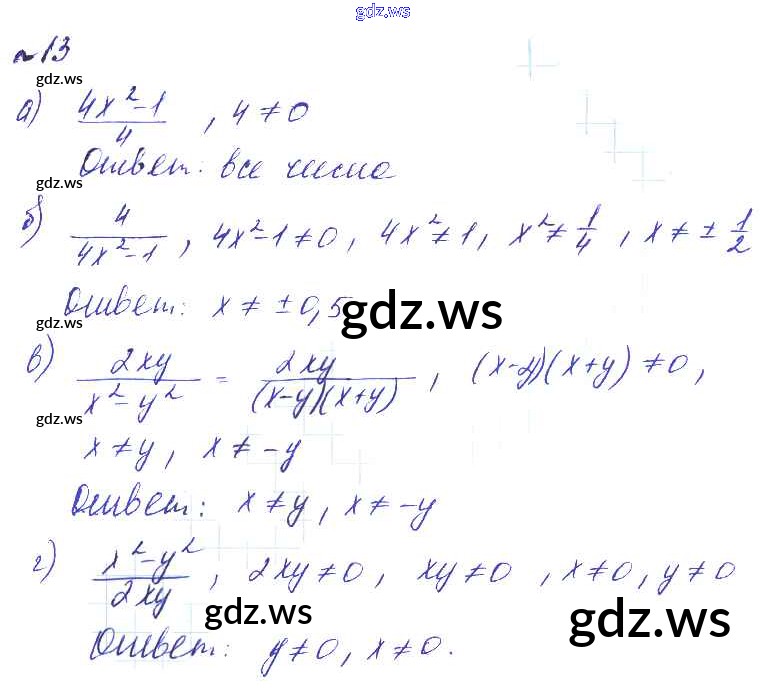 gdz.ws
№13
gdz.ws
а) (4x²-1)/4 , 4 ≠ 0
Ответ: все числа
gdz.ws
б) 4/(4x²-1) , 4x²-1 ≠ 0, 4x² ≠ 1, x² ≠ 1/4 , x ≠ ± 1/2
Ответ: x ≠ ±0,5
gdz.ws
gdz.ws
в) 2xy/(x²-y²) = 2xy/((x-y)(x+y)) , (x-y)(x+y) ≠ 0,
gdz.ws
x ≠ y, x ≠ -y
Ответ: x ≠ y, x ≠ -y
г) (x²-y²)/2xy , 2xy ≠ 0, xy ≠ 0 , x ≠ 0, y ≠ 0
gdz.ws
gdz.ws
Ответ: y ≠ 0, x ≠ 0.